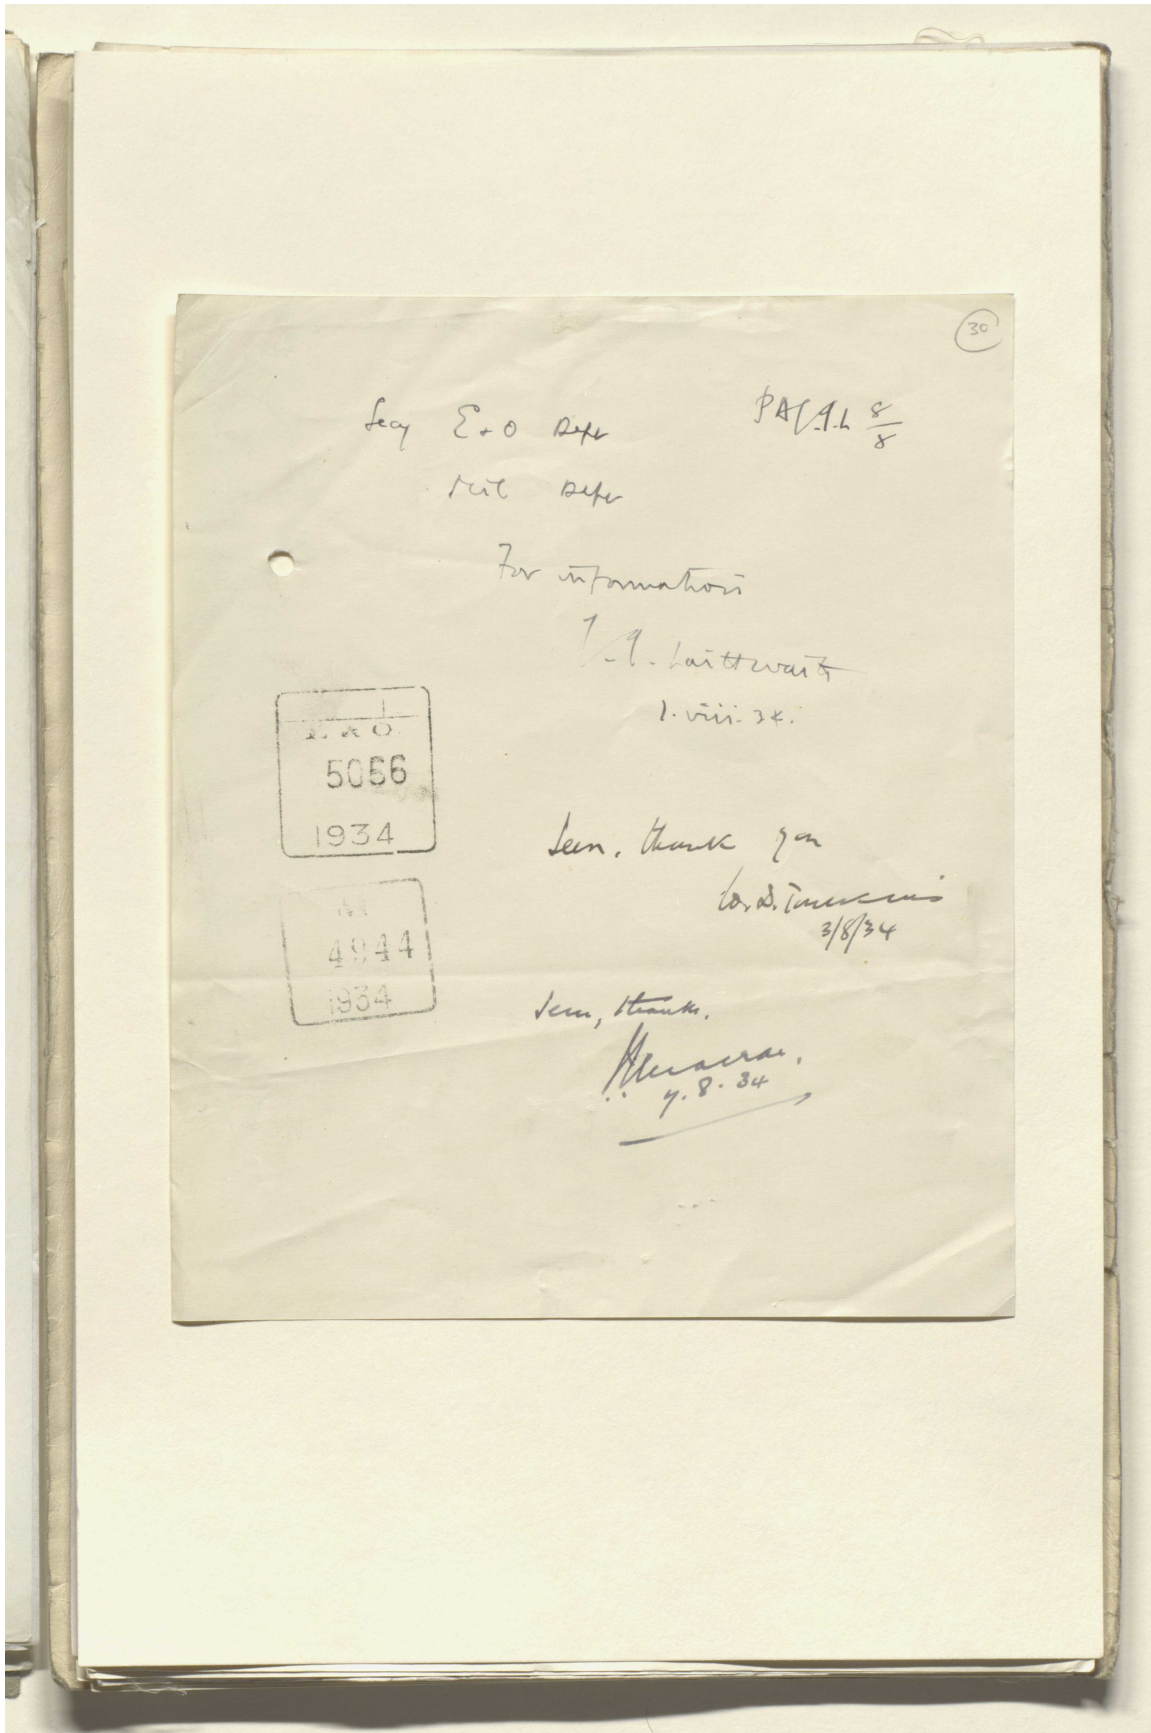 30
Secy E & O Dept
PA J.G.L 8/8
Mil Dept
For information
J.G. Laithwaite
1. viii. 34.
E & O.
5066
1934
Seen, thank you
3/8/34
M
4944
1934
Seen, thanks.
7. 8. 34